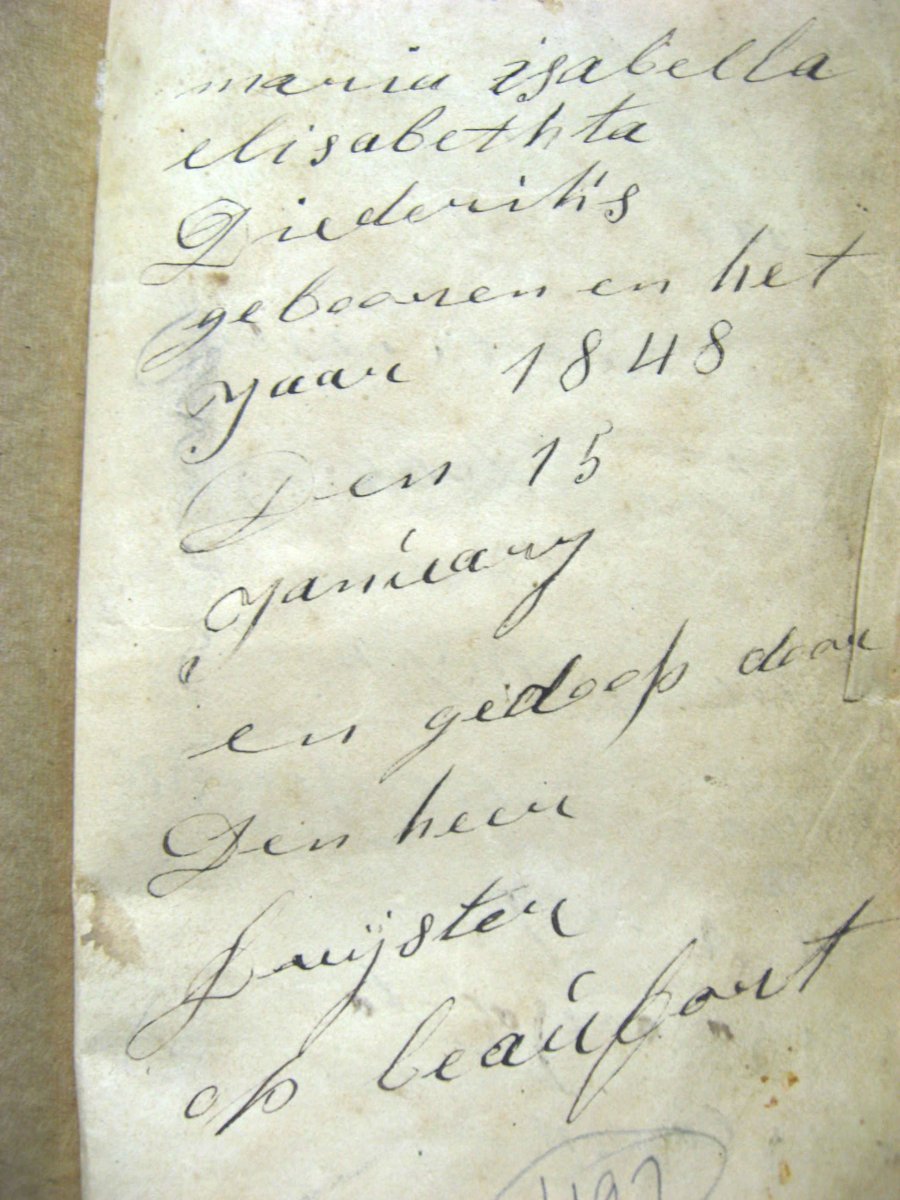 maria isabella
elisabethta
Diederiks
gebooren en het
yaar 1848
Den 15
yanúeary
en gedoop door
Den heer
op beaúfort